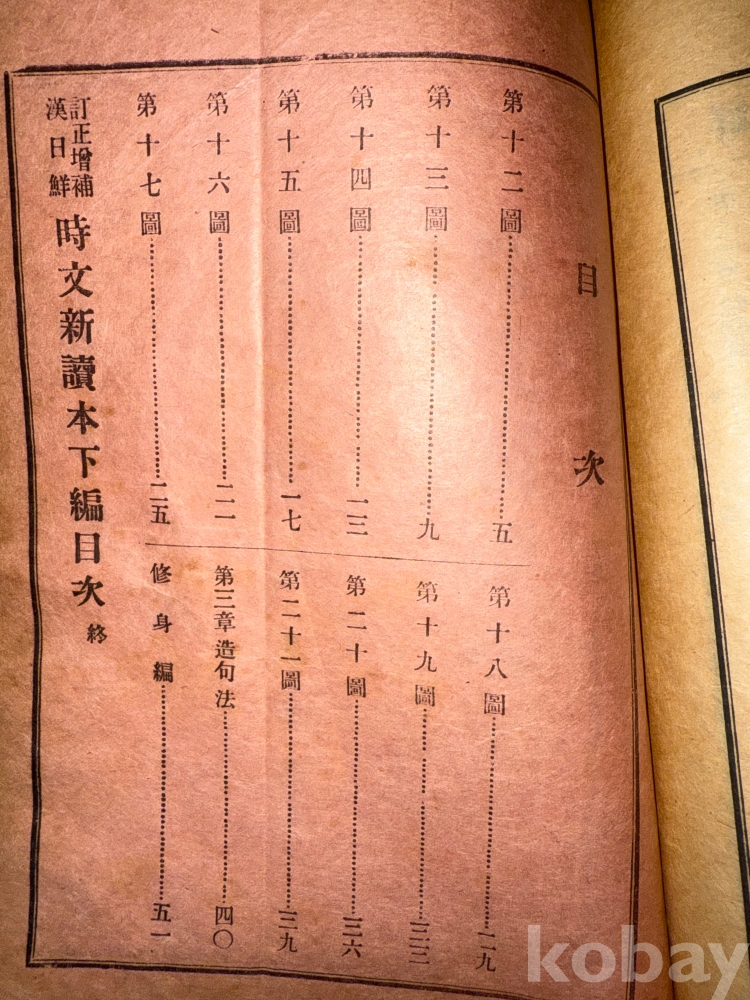 目次
第十二圖……五
第十三圖……九
第十四圖……一三
第十五圖……一七
第十六圖……二一
第十七圖……二五
第十八圖……二九
第十九圖……三三
第二十圖……三六
第二十一圖……三九
第三章造句法……四〇
修身編……五一
訂正增補
漢日鮮
時文新讀本下編目次 終
kobay